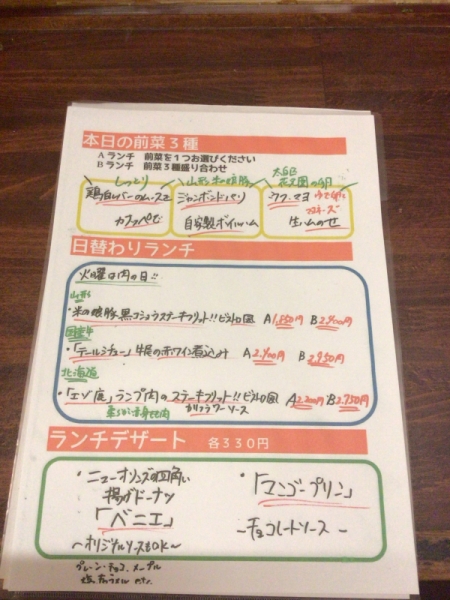 本日の前菜3種
Aランチ 前菜を1つお選びください
Bランチ 前菜3種盛り合わせ
しっとり
鶏白レバーのムースを
カナッペで
山形 米の娘豚
ジャンボンドパリ
自家製ボイルハム
ウフ・マヨ
生ハムのせ
日替わりランチ
火曜日肉の日!!
山形
・米の娘豚、黒コショウステーキフリット!!ビストロ風 A1,850円 B2,400円
国産牛
・「テールシチュー」牛尾の赤ワイン煮込み A2,400円 B2,950円
北海道
・「エゾ鹿」ランプ肉のステーキフリット!!ビストロ風 A2,200円 B2,750円
柔らかい赤身もも肉
ランチデザート 各330円
・ニューオリンズの四角い
揚げドーナツ
「ベニエ」
〜オリジナルソースもOK〜
プレーン・チョコ、メープル
塩キャラメル etc.
・「マンゴープリン」
〜チョコレートソース〜